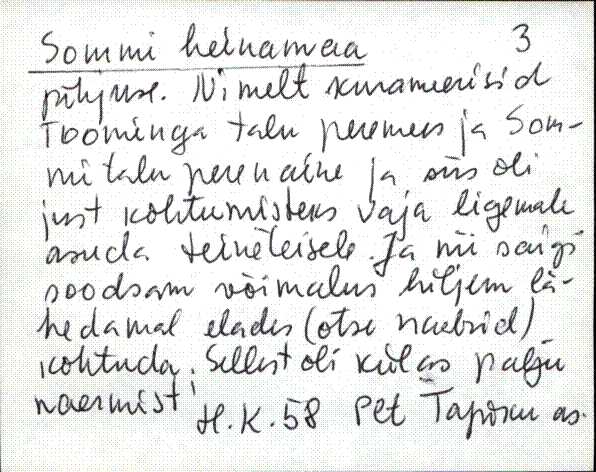 Sommi heinamaa 3
põhjuse. Nimelt kurameerisid
Toominga talu peremees ja Som-
mi talu perenaine ja siis oli
just kohtumisteks vaja ligemale
asuda teineteisele. Ja nii saigi
soodsam võimalus hiljem lä-
hedamal elades (otse naabrid)
kohtuda. Sellest oli külas palju
naermist!
H.K. 58 Plt Tapiku as.